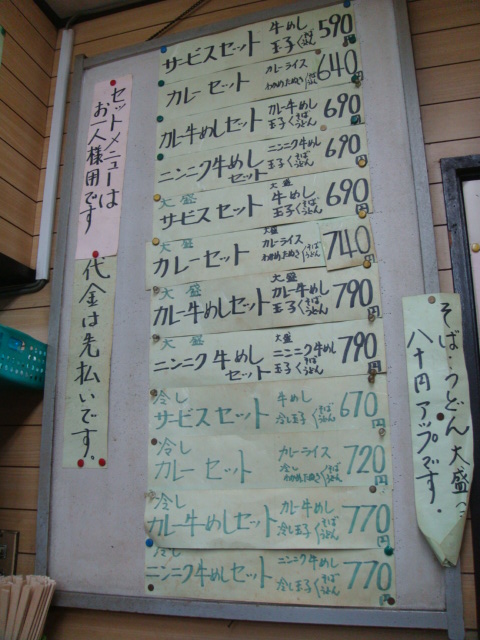 サービスセット 牛めし 玉子 そば うどん 590円
カレーセット カレーライス わかめたぬき そば うどん 640円
カレー牛めしセット カレー牛めし 玉子 そば うどん 690円
ニンニク牛めしセット ニンニク牛めし 玉子 そば うどん 690円
大盛 サービスセット 大盛 牛めし 玉子 そば うどん 690円
大盛 カレーセット 大盛 カレーライス わかめたぬき そば うどん 740円
大盛 カレー牛めしセット 大盛 カレー牛めし 玉子 そば うどん 790円
大盛 ニンニク牛めしセット 大盛 ニンニク牛めし 玉子 そば うどん 790円
冷し サービスセット 牛めし 冷し玉子 そば うどん 670円
冷し カレーセット カレーライス 冷し わかめたぬき そば うどん 720円
冷し カレー牛めしセット カレー牛めし 冷し玉子 そば うどん 770円
冷し ニンニク牛めしセット ニンニク牛めし 冷し玉子 そば うどん 770円
セットメニューは
お一人様用です
代金は先払いです。
そば・うどん大盛
八十円アップです。